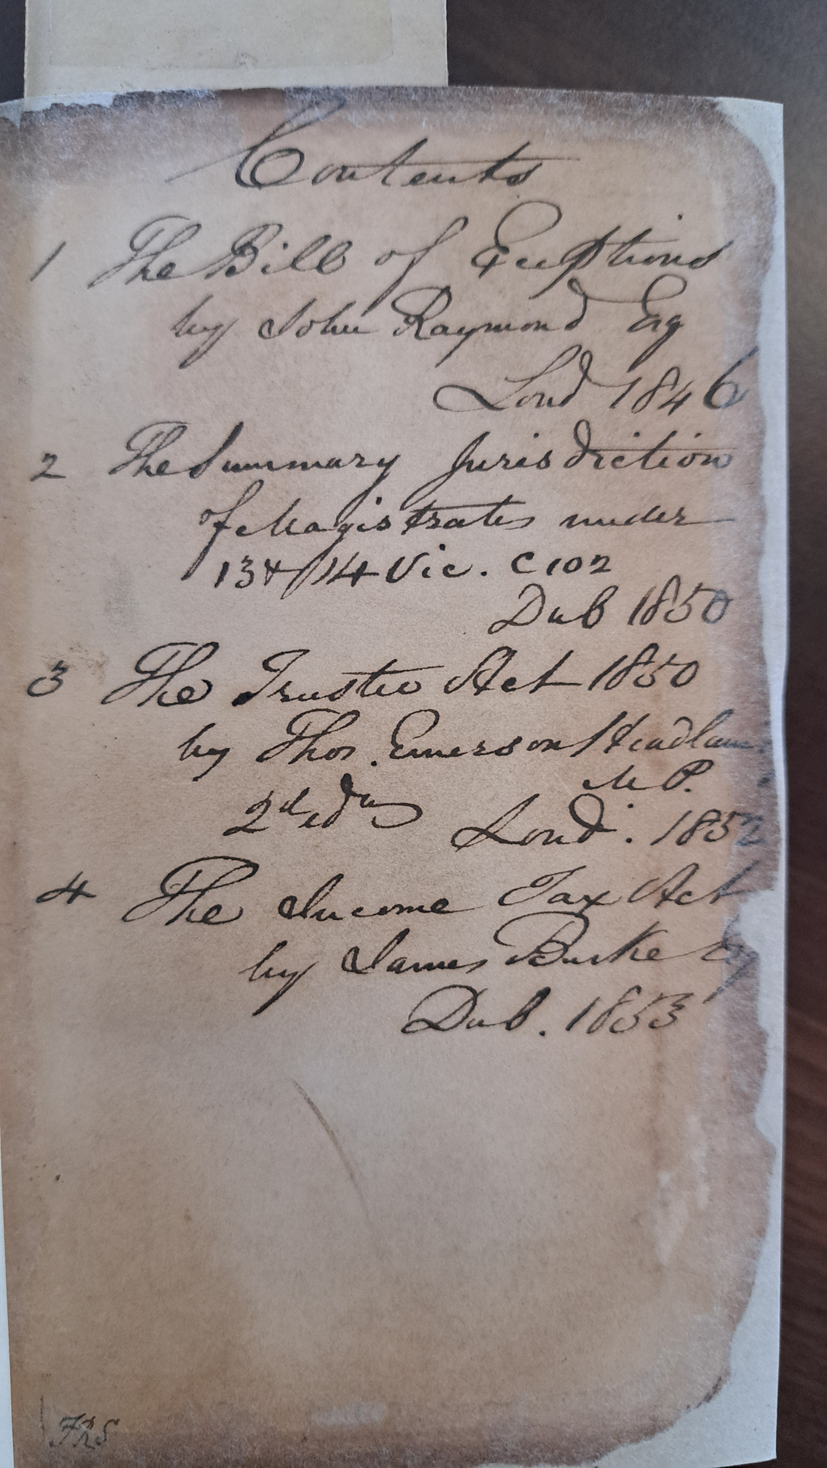 Contents
1 The Bill of Exceptions
by John Raymond Esq
Lond 1846
2 The Summary Jurisdiction
of Magistrates under
13 & 14 Vic. C 102
Dub 1850
3 The Trustee Act 1850
by Thos. Emerson Headlam
M P.
2d edn Lond. 1852
4 The Income Tax Act
by James Burke Esq
Dub. 1853